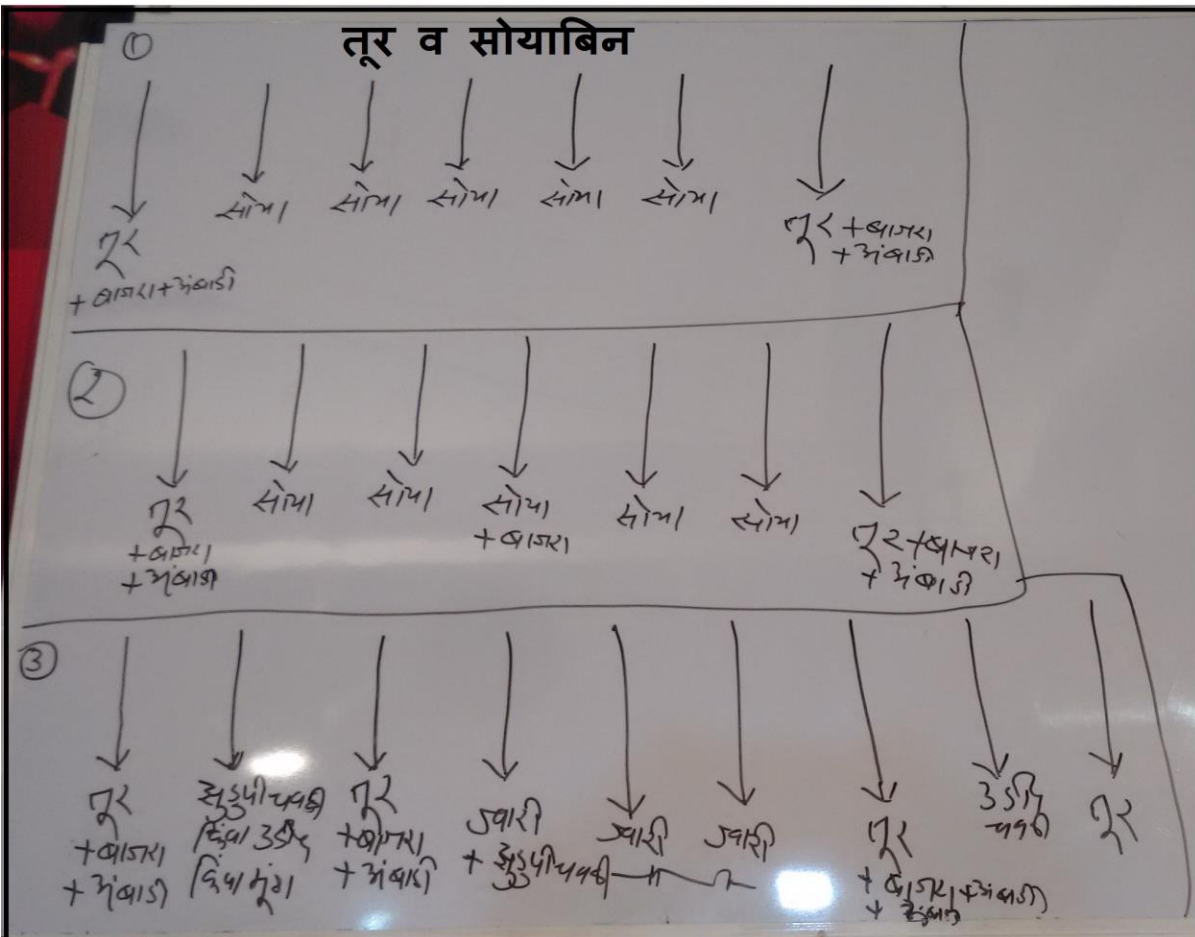 तूर व सोयाबिन
①
तूर
+ बाजरा + अंबाडी
सोया
सोया
सोया
सोया
सोया
तूर + बाजरा
+ अंबाडी
②
तूर
+ बाजरा
+ अंबाडी
सोया
सोया
सोया
+ बाजरा
सोया
सोया
तूर + बाजरा
+ अंबाडी
③
तूर
+ बाजरा
+ अंबाडी
झुडुपी चवळी
किंवा उडीद
किंवा मूग
तूर
+ बाजरा
+ अंबाडी
ज्वारी
+ झुडुपी चवळी
ज्वारी
ज्वारी
तूर
+ बाजरा + अंबाडी
उडीद
चवळी
तूर